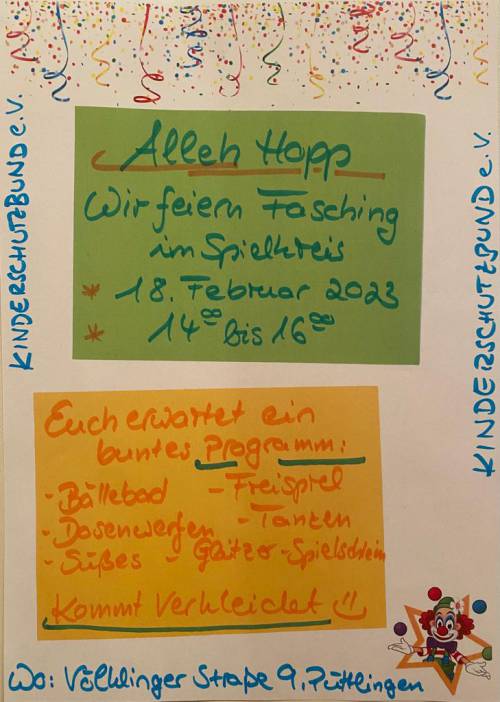 KINDERSCHUTZBUND e.V.
Alleh Hopp
Wir feiern Fasching
im Spielkreis
* 18. Februar 2023
* 14⁰⁰ bis 16⁰⁰
KINDERSCHUTZBUND e.V.
Euch erwartet ein
buntes Programm:
- Bällebad - Freispiel
- Dosenwerfen - Tanzen
- Süßes - Glitzer - Spielschlein
Kommt Verkleidet
Wo: Völklinger Straße 9, Püttlingen